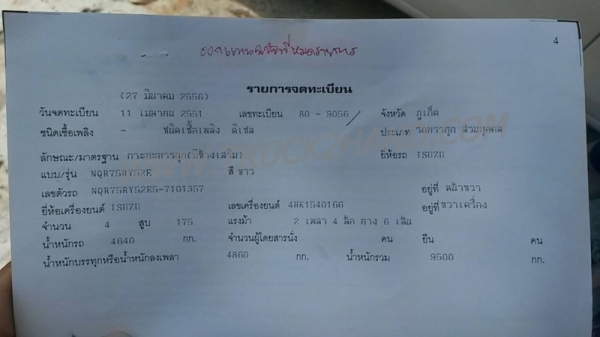 4
รายการจดทะเบียน
(27 มีนาคม 2556)
วันจดทะเบียน 11 เมษายน 2551 เลขทะเบียน 80 - 9056 จังหวัด ภูเก็ต
ชนิดเชื้อเพลิง - ชนิดเชื้อเพลิง ดีเซล ประเภท รถบรรทุก ส่วนบุคคล
ลักษณะ/มาตรฐาน กระบะบรรทุก(มีข้างเสริม) ยี่ห้อรถ ISUZU
แบบ/รุ่น NQR75RY52E สี ขาว
เลขตัวรถ NQR75RY52E5-7101357 อยู่ที่ คัสซีขวา
ยี่ห้อเครื่องยนต์ ISUZU เลขเครื่องยนต์ 4HK1540166 อยู่ที่ ขวาเครื่อง
จำนวน 4 สูบ 175 แรงม้า 2 เพลา 4 ล้อ ยาง 6 เส้น
น้ำหนักรถ 4640 กก. จำนวนผู้โดยสารนั่ง คน ยืน คน
น้ำหนักบรรทุกหรือน้ำหนักลงเพลา 4860 กก. น้ำหนักรวม 9500 กก.